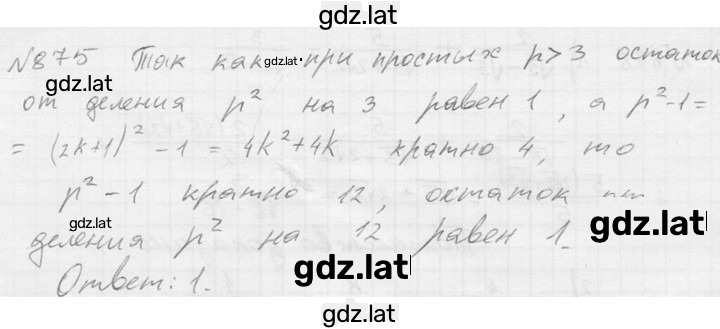 gdz.lat
№875 Так как gdz.lat при простых p>3 остаток
gdz.lat
от деления p² на 3 равен 1, а p²-1=
= (2k+1)² - 1 = 4k²+4k кратно 4, то
p² - 1 кратно 12, остаток от
gdz.lat
gdz.lat
деления p² на 12 равен 1.
gdz.lat
Ответ: 1.
gdz.lat